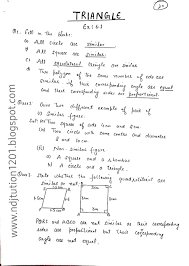 TRIANGLE
Ex: 6.1
Q1. Fill in the blanks:
a) All circle are similar
b) All square are similar.
c) All equilateral triangle are similar
Two polygon of the same number of side are
similar, if their corresponding angle are equal
and their corresponding side are proportional.
Give two different example of pair of
(i) Similar figure.
(ii) Two circle with same centre and diameter
2 and 10cm.
(ii) Non-similar figure
i) A square and a rhombus
State whether the following quadrilateral are
similar or not.
PQRS and ABCD are not similar as their corresponding
sides are proportional but their corresponding
angle are not equal.
www.ndjtution1201.blogspot.com